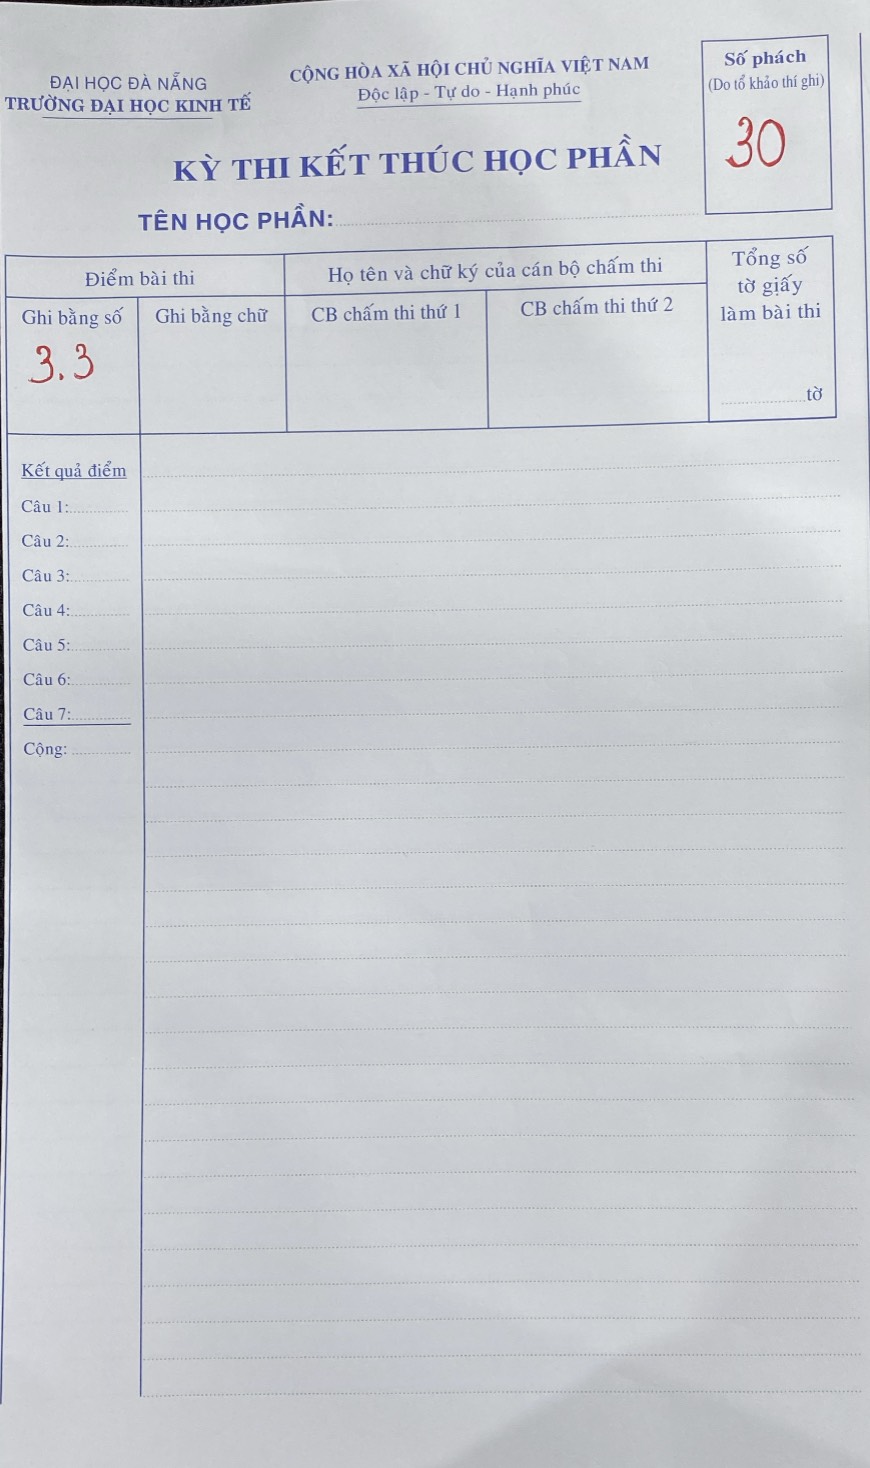 ĐẠI HỌC ĐÀ NẴNG
TRƯỜNG ĐẠI HỌC KINH TẾ
CỘNG HÒA XÃ HỘI CHỦ NGHĨA VIỆT NAM
Độc lập - Tự do - Hạnh phúc
Số phách
(Do tổ khảo thí ghi)
30
KỲ THI KẾT THÚC HỌC PHẦN
TÊN HỌC PHẦN:
Điểm bài thi
Họ tên và chữ ký của cán bộ chấm thi
Tổng số
tờ giấy
làm bài thi
Ghi bằng số
Ghi bằng chữ
CB chấm thi thứ 1
CB chấm thi thứ 2
3.3
tờ
Kết quả điểm
Câu 1:
Câu 2:
Câu 3:
Câu 4:
Câu 5:
Câu 6:
Câu 7:
Cộng: